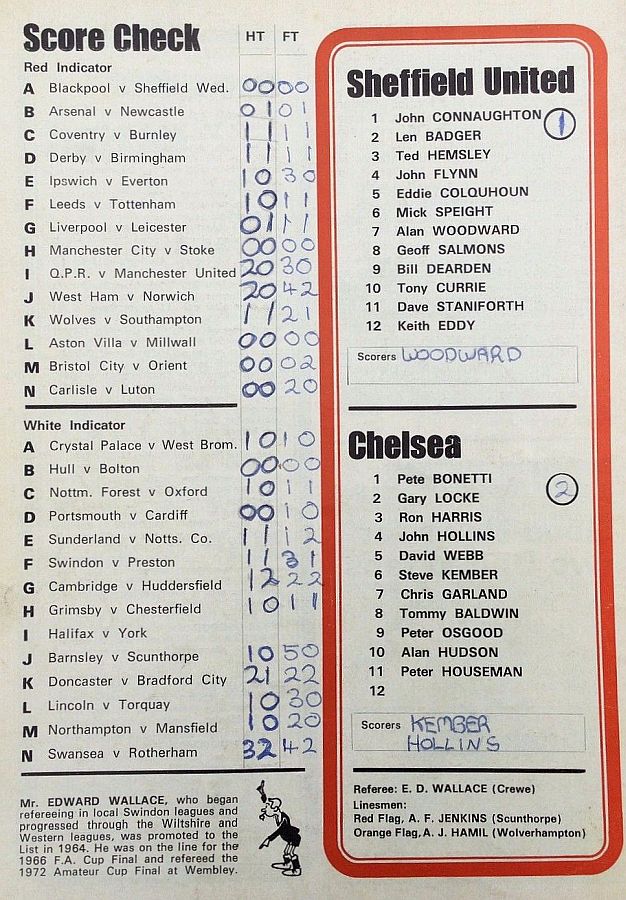 Score Check HT FT
Red Indicator
A Blackpool v Sheffield Wed. 00 00
B Arsenal v Newcastle 01 01
C Coventry v Burnley 11 11
D Derby v Birmingham 11 11
E Ipswich v Everton 10 30
F Leeds v Tottenham 10 11
G Liverpool v Leicester 01 11
H Manchester City v Stoke 00 00
I Q.P.R. v Manchester United 20 30
J West Ham v Norwich 20 42
K Wolves v Southampton 11 21
L Aston Villa v Millwall 00 00
M Bristol City v Orient 00 02
N Carlisle v Luton 00 20
White Indicator
A Crystal Palace v West Brom. 10 10
B Hull v Bolton 00 00
C Nottm. Forest v Oxford 10 11
D Portsmouth v Cardiff 00 10
E Sunderland v Notts. Co. 11 12
F Swindon v Preston 11 31
G Cambridge v Huddersfield 12 22
H Grimsby v Chesterfield 10 11
I Halifax v York
J Barnsley v Scunthorpe 10 50
K Doncaster v Bradford City 21 22
L Lincoln v Torquay 10 30
M Northampton v Mansfield 10 20
N Swansea v Rotherham 32 42
Mr. EDWARD WALLACE, who began
refereeing in local Swindon leagues and
progressed through the Wiltshire and
Western leagues, was promoted to the
List in 1964. He was on the line for the
1966 F.A. Cup Final and refereed the
1972 Amateur Cup Final at Wembley.
Sheffield United
1 John CONNAUGHTON 1
2 Len BADGER
3 Ted HEMSLEY
4 John FLYNN
5 Eddie COLQUHOUN
6 Mick SPEIGHT
7 Alan WOODWARD
8 Geoff SALMONS
9 Bill DEARDEN
10 Tony CURRIE
11 Dave STANIFORTH
12 Keith EDDY
Scorers WOODWARD
Chelsea
1 Pete BONETTI
2 Gary LOCKE 2
3 Ron HARRIS
4 John HOLLINS
5 David WEBB
6 Steve KEMBER
7 Chris GARLAND
8 Tommy BALDWIN
9 Peter OSGOOD
10 Alan HUDSON
11 Peter HOUSEMAN
12
Scorers KEMBER
HOLLINS
Referee: E. D. WALLACE (Crewe)
Linesmen:
Red Flag, A. F. JENKINS (Scunthorpe)
Orange Flag, A. J. HAMIL (Wolverhampton)